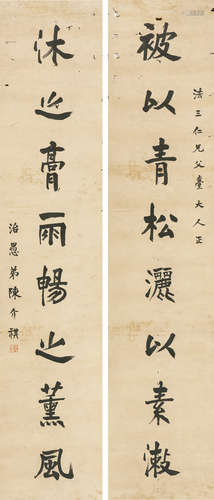 法三仁兄父臺大人正
被以青松灑以素漵
沐之膏雨暢之薰風
治愚弟陳介祺